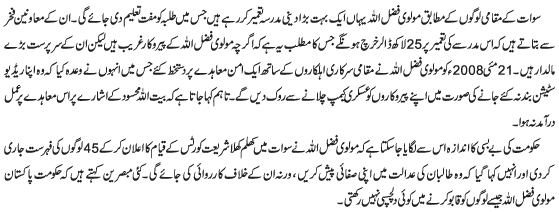 سوات کے مقامی لوگوں کے مطابق مولوی فضل اللہ یہاں ایک بہت بڑا دینی مدرسہ تعمیر کر رہے ہیں جس میں طلبہ کو مفت تعلیم دی جائے گی۔ ان کے معاونین فخر
سے بتاتے ہیں کہ اس مدرسے کی تعمیر پر 25 لاکھ ڈالر خرچ ہونگے جس کا مطلب یہ ہے کہ اگرچہ مولوی فضل اللہ کے پیروکار غریب ہیں لیکن ان کے سرپرست بڑے
مالدار ہیں۔ 21 مئی 2008ء کو مولوی فضل اللہ نے مقامی سرکاری اہلکاروں کے ساتھ ایک امن معاہدے پر دستخط کئے جس میں انہوں نے وعدہ کیا کہ وہ اپنا ریڈیو
سٹیشن بند نہ کئے جانے کی صورت میں اپنے پیروکاروں کو عسکری کیمپ چلانے سے روک دیں گے۔ تاہم کہا جاتا ہے کہ بیت اللہ محسود کے اشارے پر اس معاہدے پر عمل
درآمد نہ ہوا۔
حکومت کی بے بسی کا اندازہ اس سے لگایا جا سکتا ہے کہ مولوی فضل اللہ نے سوات میں کھلم کھلا شریعت کورٹس کے قیام کا اعلان کر کے 45 لوگوں کی فہرست جاری
کر دی اور انہیں کہا گیا کہ وہ طالبان کی عدالت میں اپنی صفائی پیش کریں، ورنہ ان کے خلاف کارروائی کی جائے گی۔ کئی مبصرین کہتے ہیں کہ حکومت پاکستان
مولوی فضل اللہ جیسے لوگوں کو قابو کرنے میں کوئی دلچسپی نہیں رکھتی۔